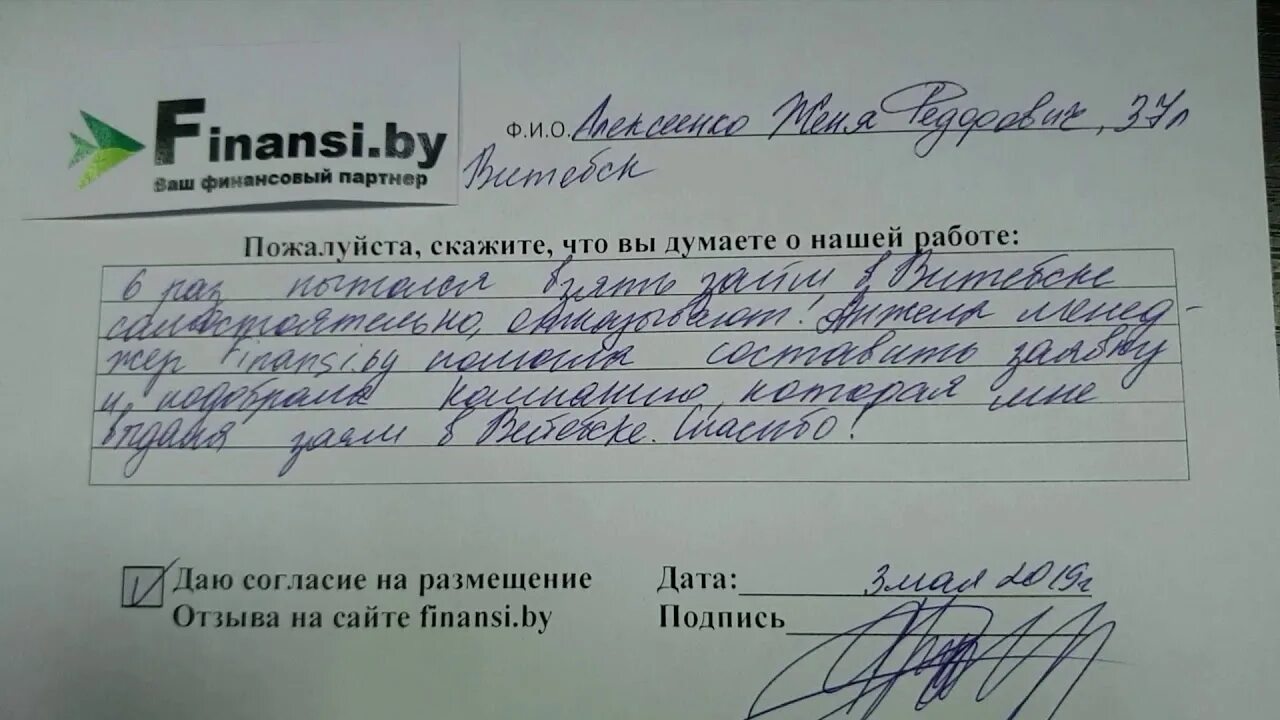 Finansi.by
Ваш финансовый партнер
Ф.И.О. Алексеенко Женя Федорович, 37л
Витебск
Пожалуйста, скажите, что вы думаете о нашей работе:
6 раз пытался взять займ в Витебске
самостоятельно, отказывают! Анжела менед-
жер Finansi.by помогла составить заявку
и подобрала компанию, которая мне
выдала заем в Витебске. Спасибо!
Даю согласие на размещение
Отзыва на сайте finansi.by
Дата: 3 мая 2019г
Подпись